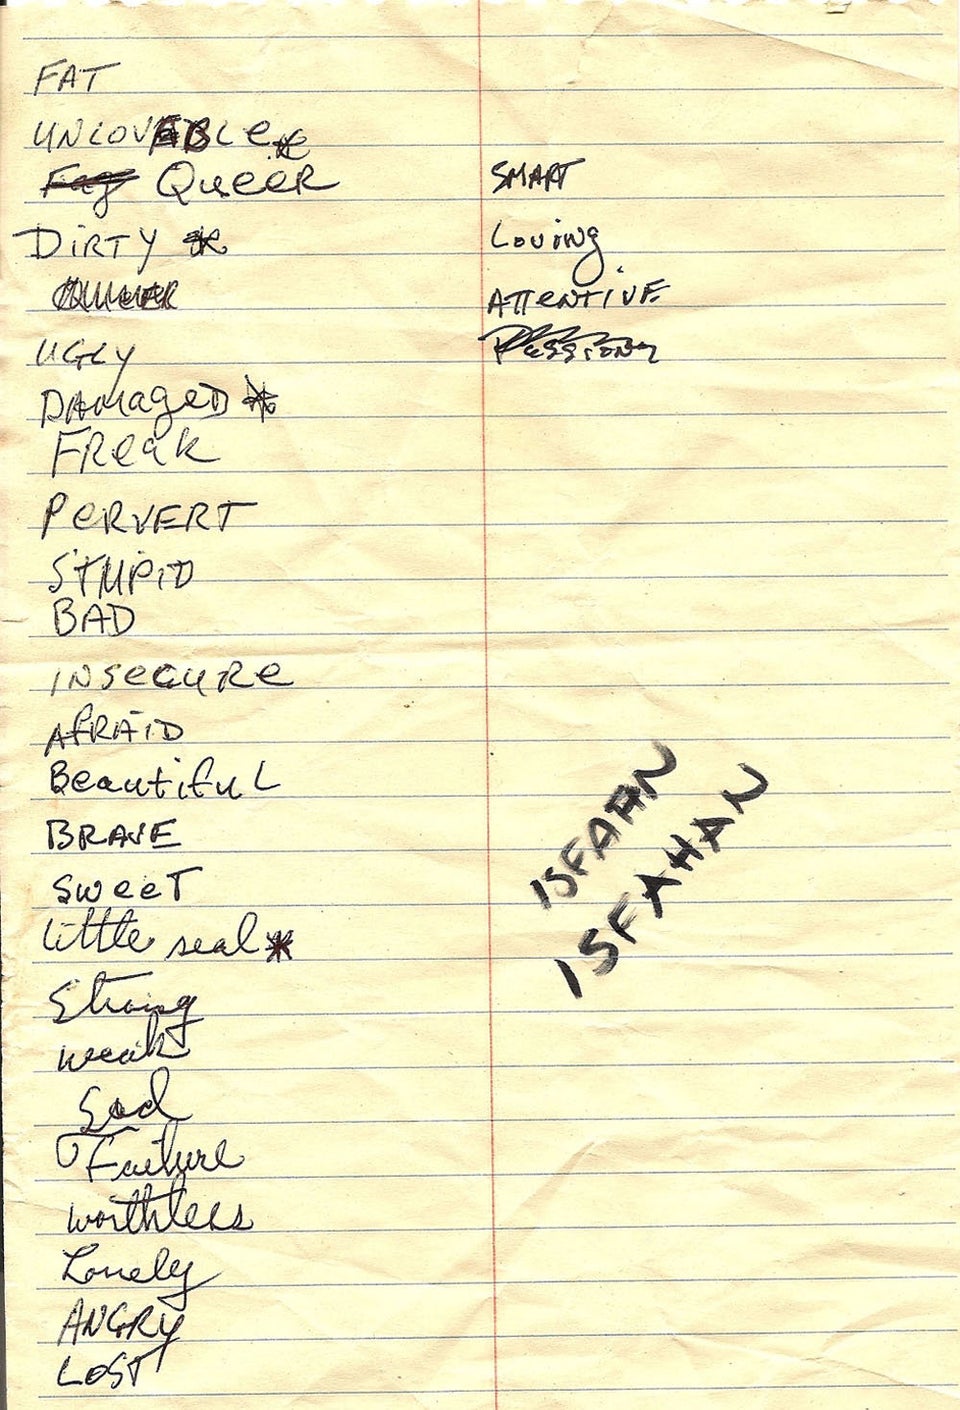 FAT
UNLOVABLE
Fag QUEER
DIRTY
UGLY
DAMAGED
FREAK
PERVERT
STUPID
BAD
INSECURE
AFRAID
BeautifuL
BRAVE
SweeT
little seal
Strong
weak
Sad
Failure
worthless
Lonely
ANGRY
LOST
SMART
Loving
ATTENTIVE
ISFAAN
ISFAHAN